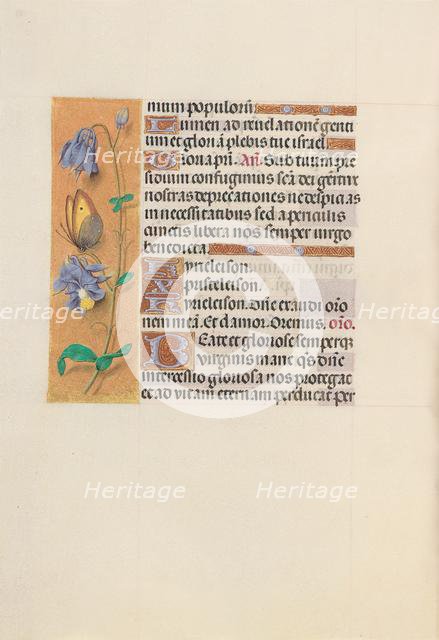 mum populorū
Lumen ad reuelationē genti
um et gloriā plebis tue israel.
Gloria pr̄i. An̄. Sub tuum pre
sidium confugimus sc̄a dei genitrix
nostras deprecationes ne despicias
in necessitatibus sed a periculis
cunctis libera nos semper virgo
benedicta.
Kyrieleison.
Xp̄isteleison.
Kyrieleison. Dn̄e exaudi or̄o
nem meā. Et clamor. Oremus. or̄o.
Beate et gloriose semperqꝫ
virginis marie qs̄ dn̄e
intercessio gloriosa nos protegat
et ad vitam eternam perducat per
Heritage Heritage
Heritage Heritage
Heritage Heritage